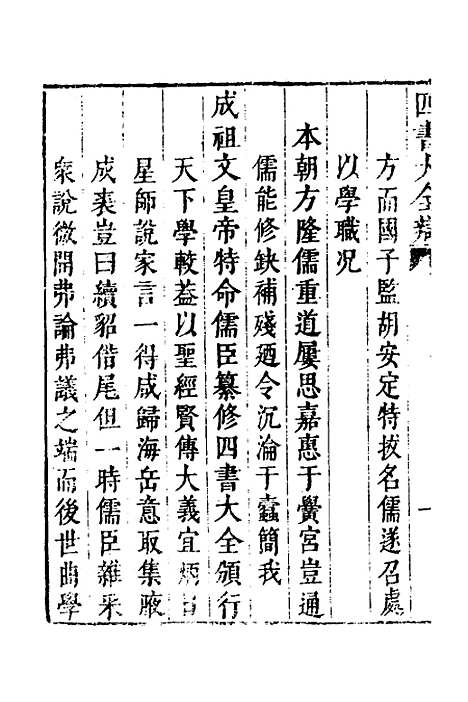 四書大全辯
一
方而國子監胡安定特拔名儒遂召處
以學職况
本朝方隆儒重道屢思嘉惠于黌宮豈通
儒能修缺補殘廼令沉淪于蠹簡我
成祖文皇帝特命儒臣纂修四書大全頒行
天下學較葢以聖經賢傳大義宜炳
星師說家言一得咸歸海岳意取集腋
成裘豈曰續貂偕尾但一時儒臣雜采
衆說微開弗論弗議之端而後世曲學